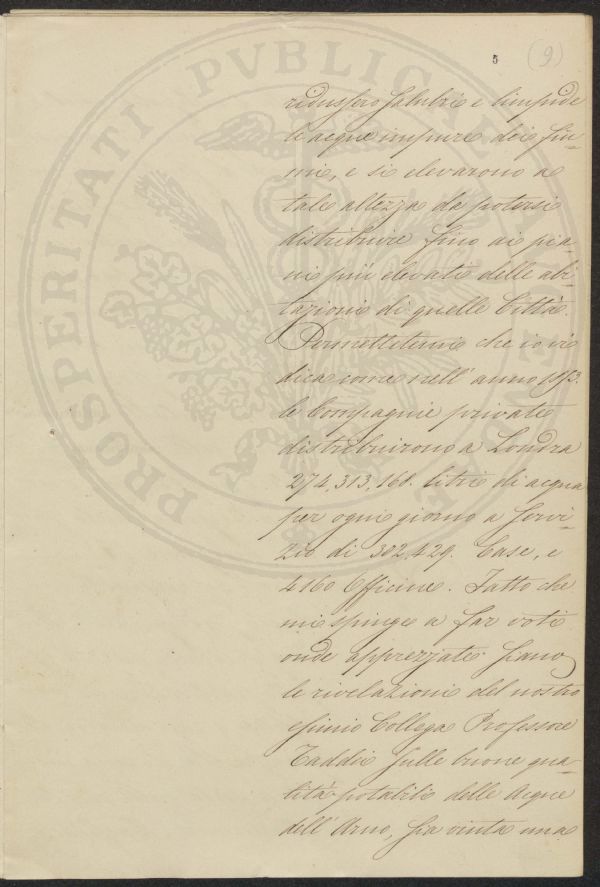 5 (9)
ridussero salubri e limpide
le acque impure dei fiu-
mi, e si elevarono a
tale altezza da potersi
distribuire fino ai pia-
ni più elevati delle abi-
tazioni di quelle Città.
Permettetemi che io vi
dica come nell' anno 1853.
le Compagnie private
distribuirono a Londra
274,313,161. litri di acqua
per ogni giorno a servi-
zio di 302,429. Case, e
4160 Officine. Fatto che
mi spinge a far voti
onde apprezzate siano
le rivelazioni del nostro
esimio Collega Professore
Taddei sulle buone qua-
lità potabili delle Acque
dell' Arno, sia vinta una
PROSPERITATI PVBLICAE